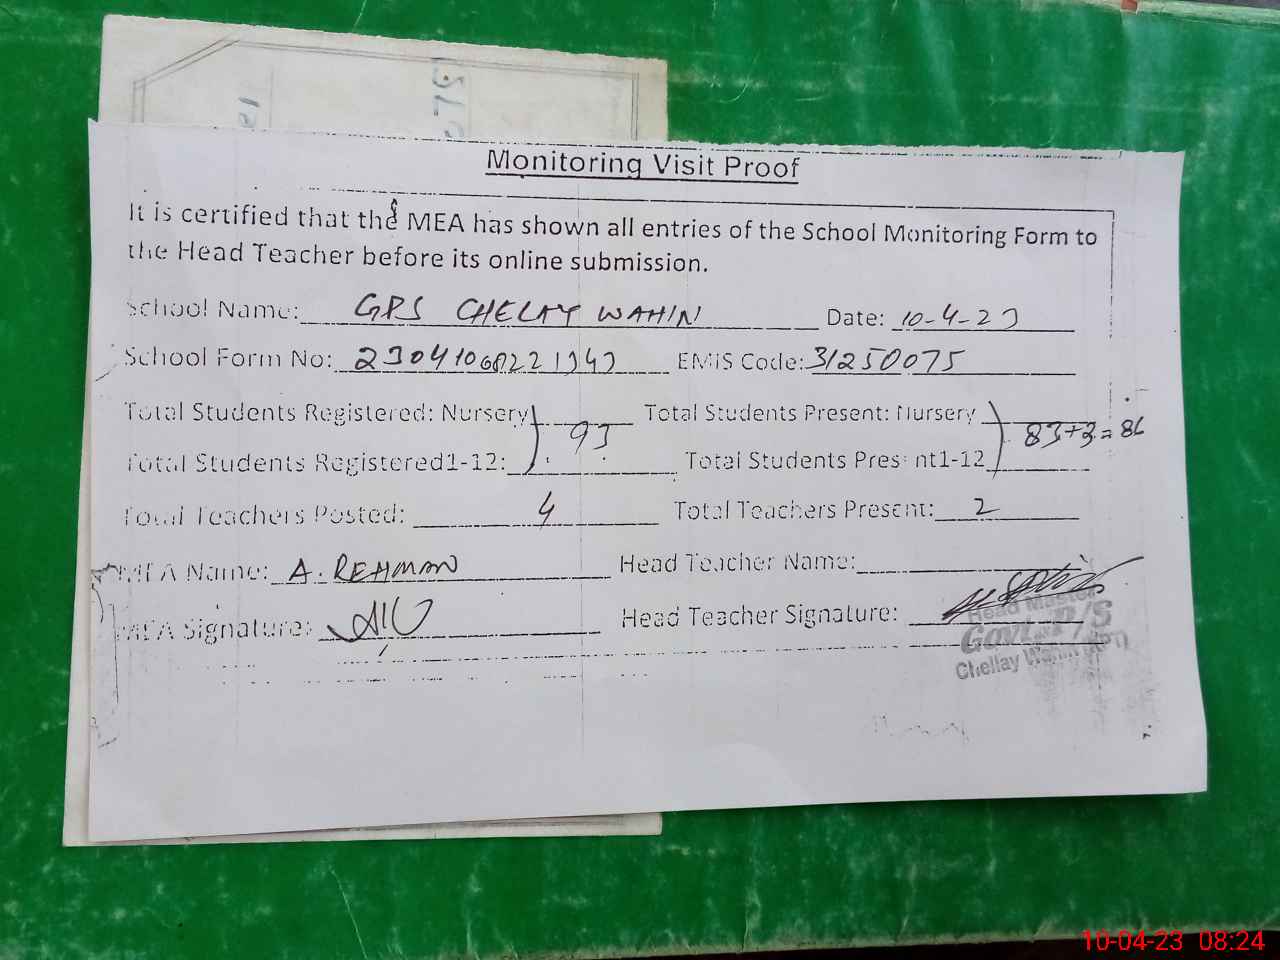 Monitoring Visit Proof
It is certified that the MEA has shown all entries of the School Monitoring Form to
the Head Teacher before its online submission.
School Name: GPS CHELAY WAHIN Date: 10-4-23
School Form No: EMIS Code: 31250075
Total Students Registered: Nursery Total Students Present: Nursery
93 83+3=86
Total Students Registered1-12: Total Students Present1-12
Total Teachers Posted: 4 Total Teachers Present: 2
MEA Name: A. REHMAN Head Teacher Name:
MEA Signature: Head Teacher Signature:
Head Master
Govt. P/S
Chellay Wahin
10-04-23 08:24